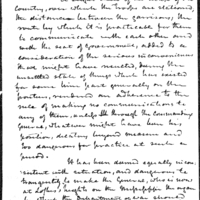 country, over which the troops are stationed,
the distance between the garrisons, the
route by which it is practicable for them
to communicate with each other and
with the seat of government, added to a
consideration of the serious inconveniences
that might have resulted, during the
unsettled state of things which has existed
for some time past generally on the
frontiers, rendered an adherence to the
rule of making no communications to
any of them, except through the commanding
General, whatsoever might have been his
position, delay beyond measure and
too dangerous for practice at such
period.
It has been deemed equally incon-
sistent with intention, and dangerous to
tranquility to make the General, who is now
at bottom, might on the Mississippi the organ
by which the Department was moved